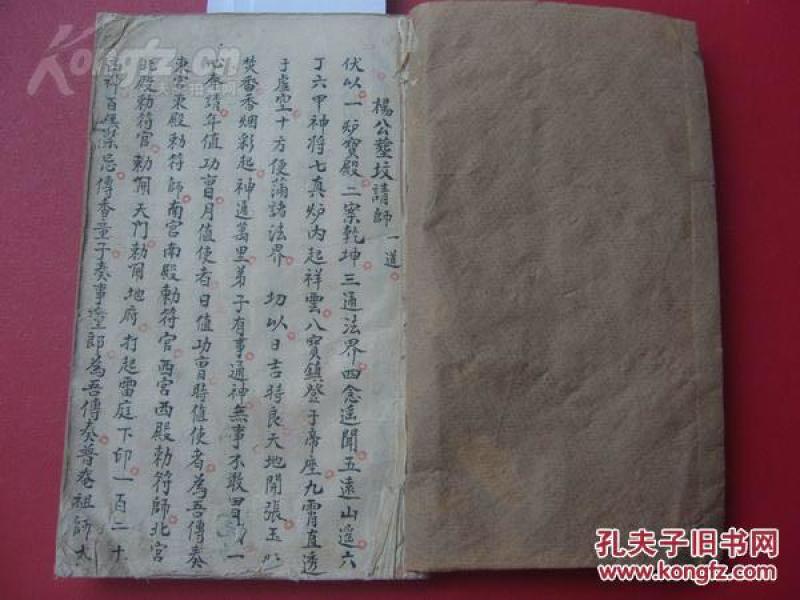 楊公塟坟請師 一道
伏以一炉寶殿二案乾坤三通法界四念遥聞五遠山遥六
丁六甲神将七真炉內起祥雲八寶鎮登于帝座九霄直透
于虛空十方便蒲諸法界 切以日吉時良天地開張玉
焚香香烟彩起神通萬里弟子有事通神無事不敢 一
心奉請年值功曺月值使者日值功曺時值使者為吾傳奏
東宮東殿勅符師南宮南殿勅符官西宮西殿勅符師北宮
北殿勅符官勅開天門勅開地府打起雷庭下印一百二十
百無禁忌傳香童子奏事童郎為吾傳奏普庵祖師太
Kongfz.cn
孔夫子旧书网
www.kongfz.com